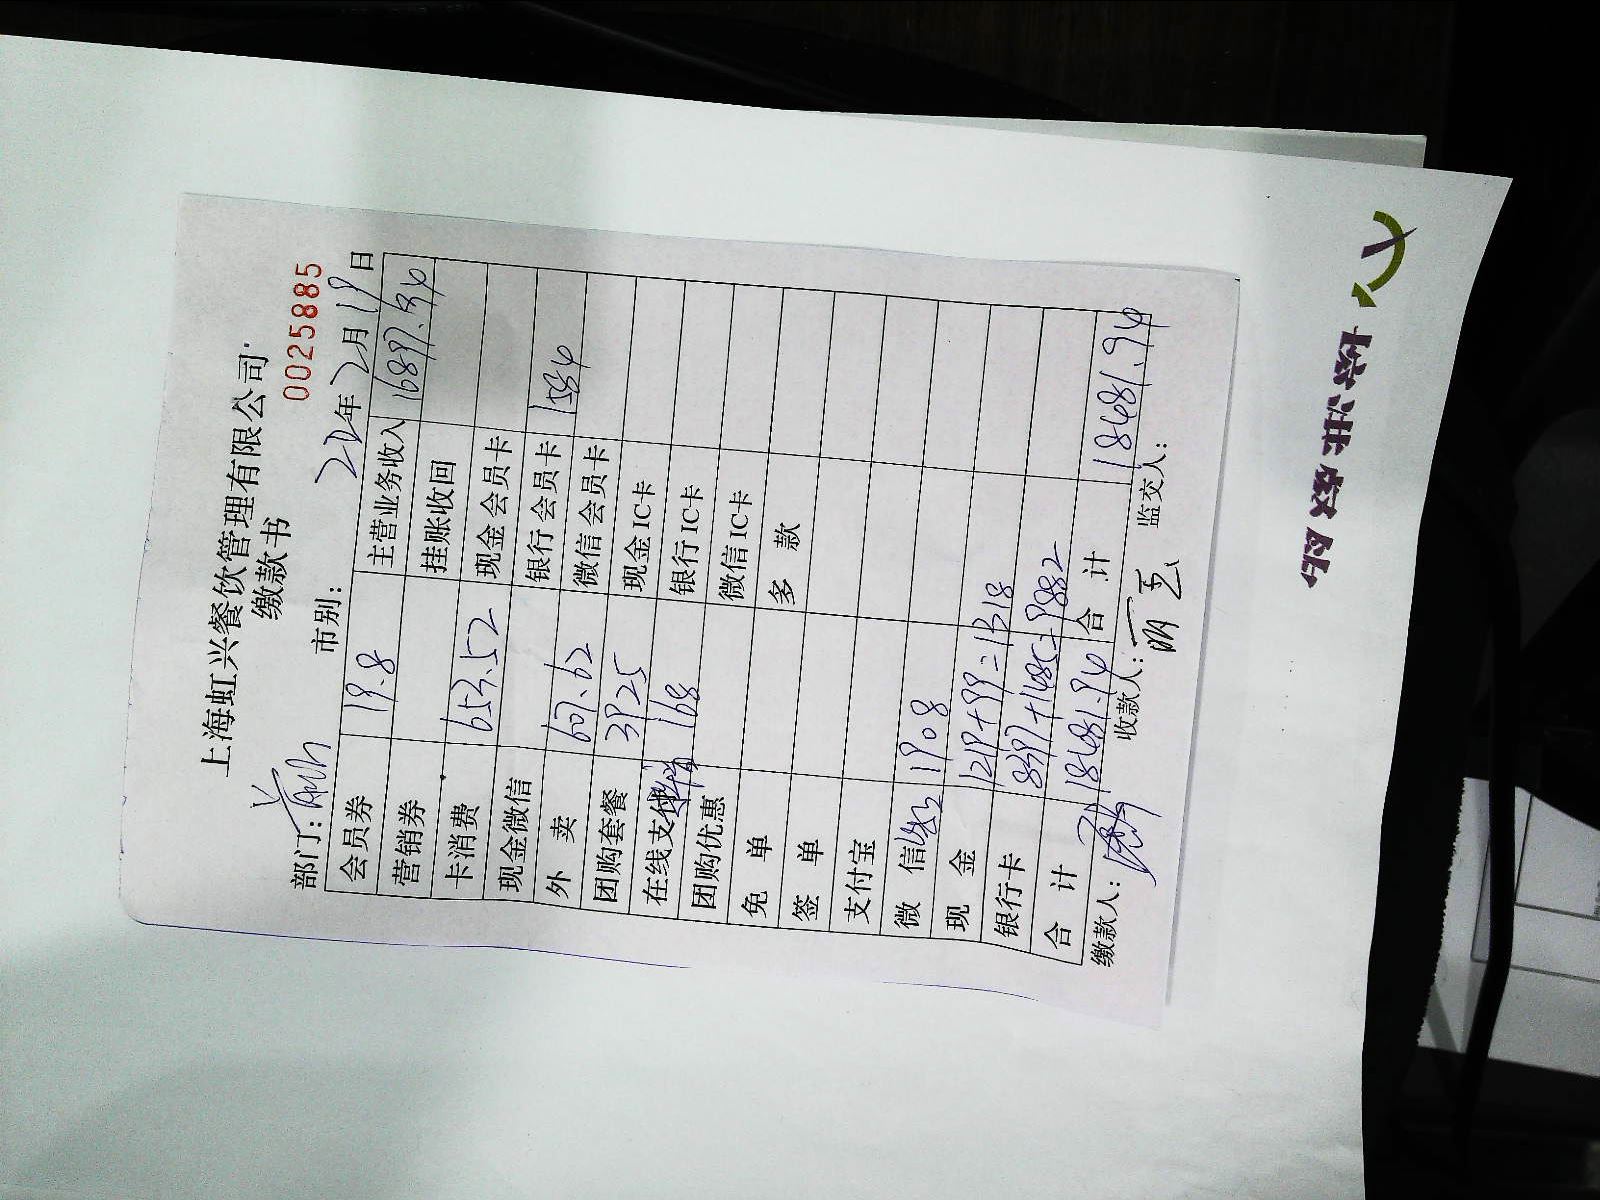 上海虹兴餐饮管理有限公司
缴款书
0025885
部门: 市别: 年2月19日
会员券 19.8 主营业务收入 16897.94
营销券 挂账收回
卡消费 653.52 现金会员卡
现金微信 银行会员卡 1584
外卖 607.62 微信会员卡
团购套餐 3925 现金IC卡
在线支付 168 银行IC卡
团购优惠 微信IC卡
免单 多款
签单
支付宝
微信 1908
现金 1219+99=1318
银行卡 8397+1485=9882
合计 18481.94 合计 18481.94
缴款人: 收款人: 监交人: